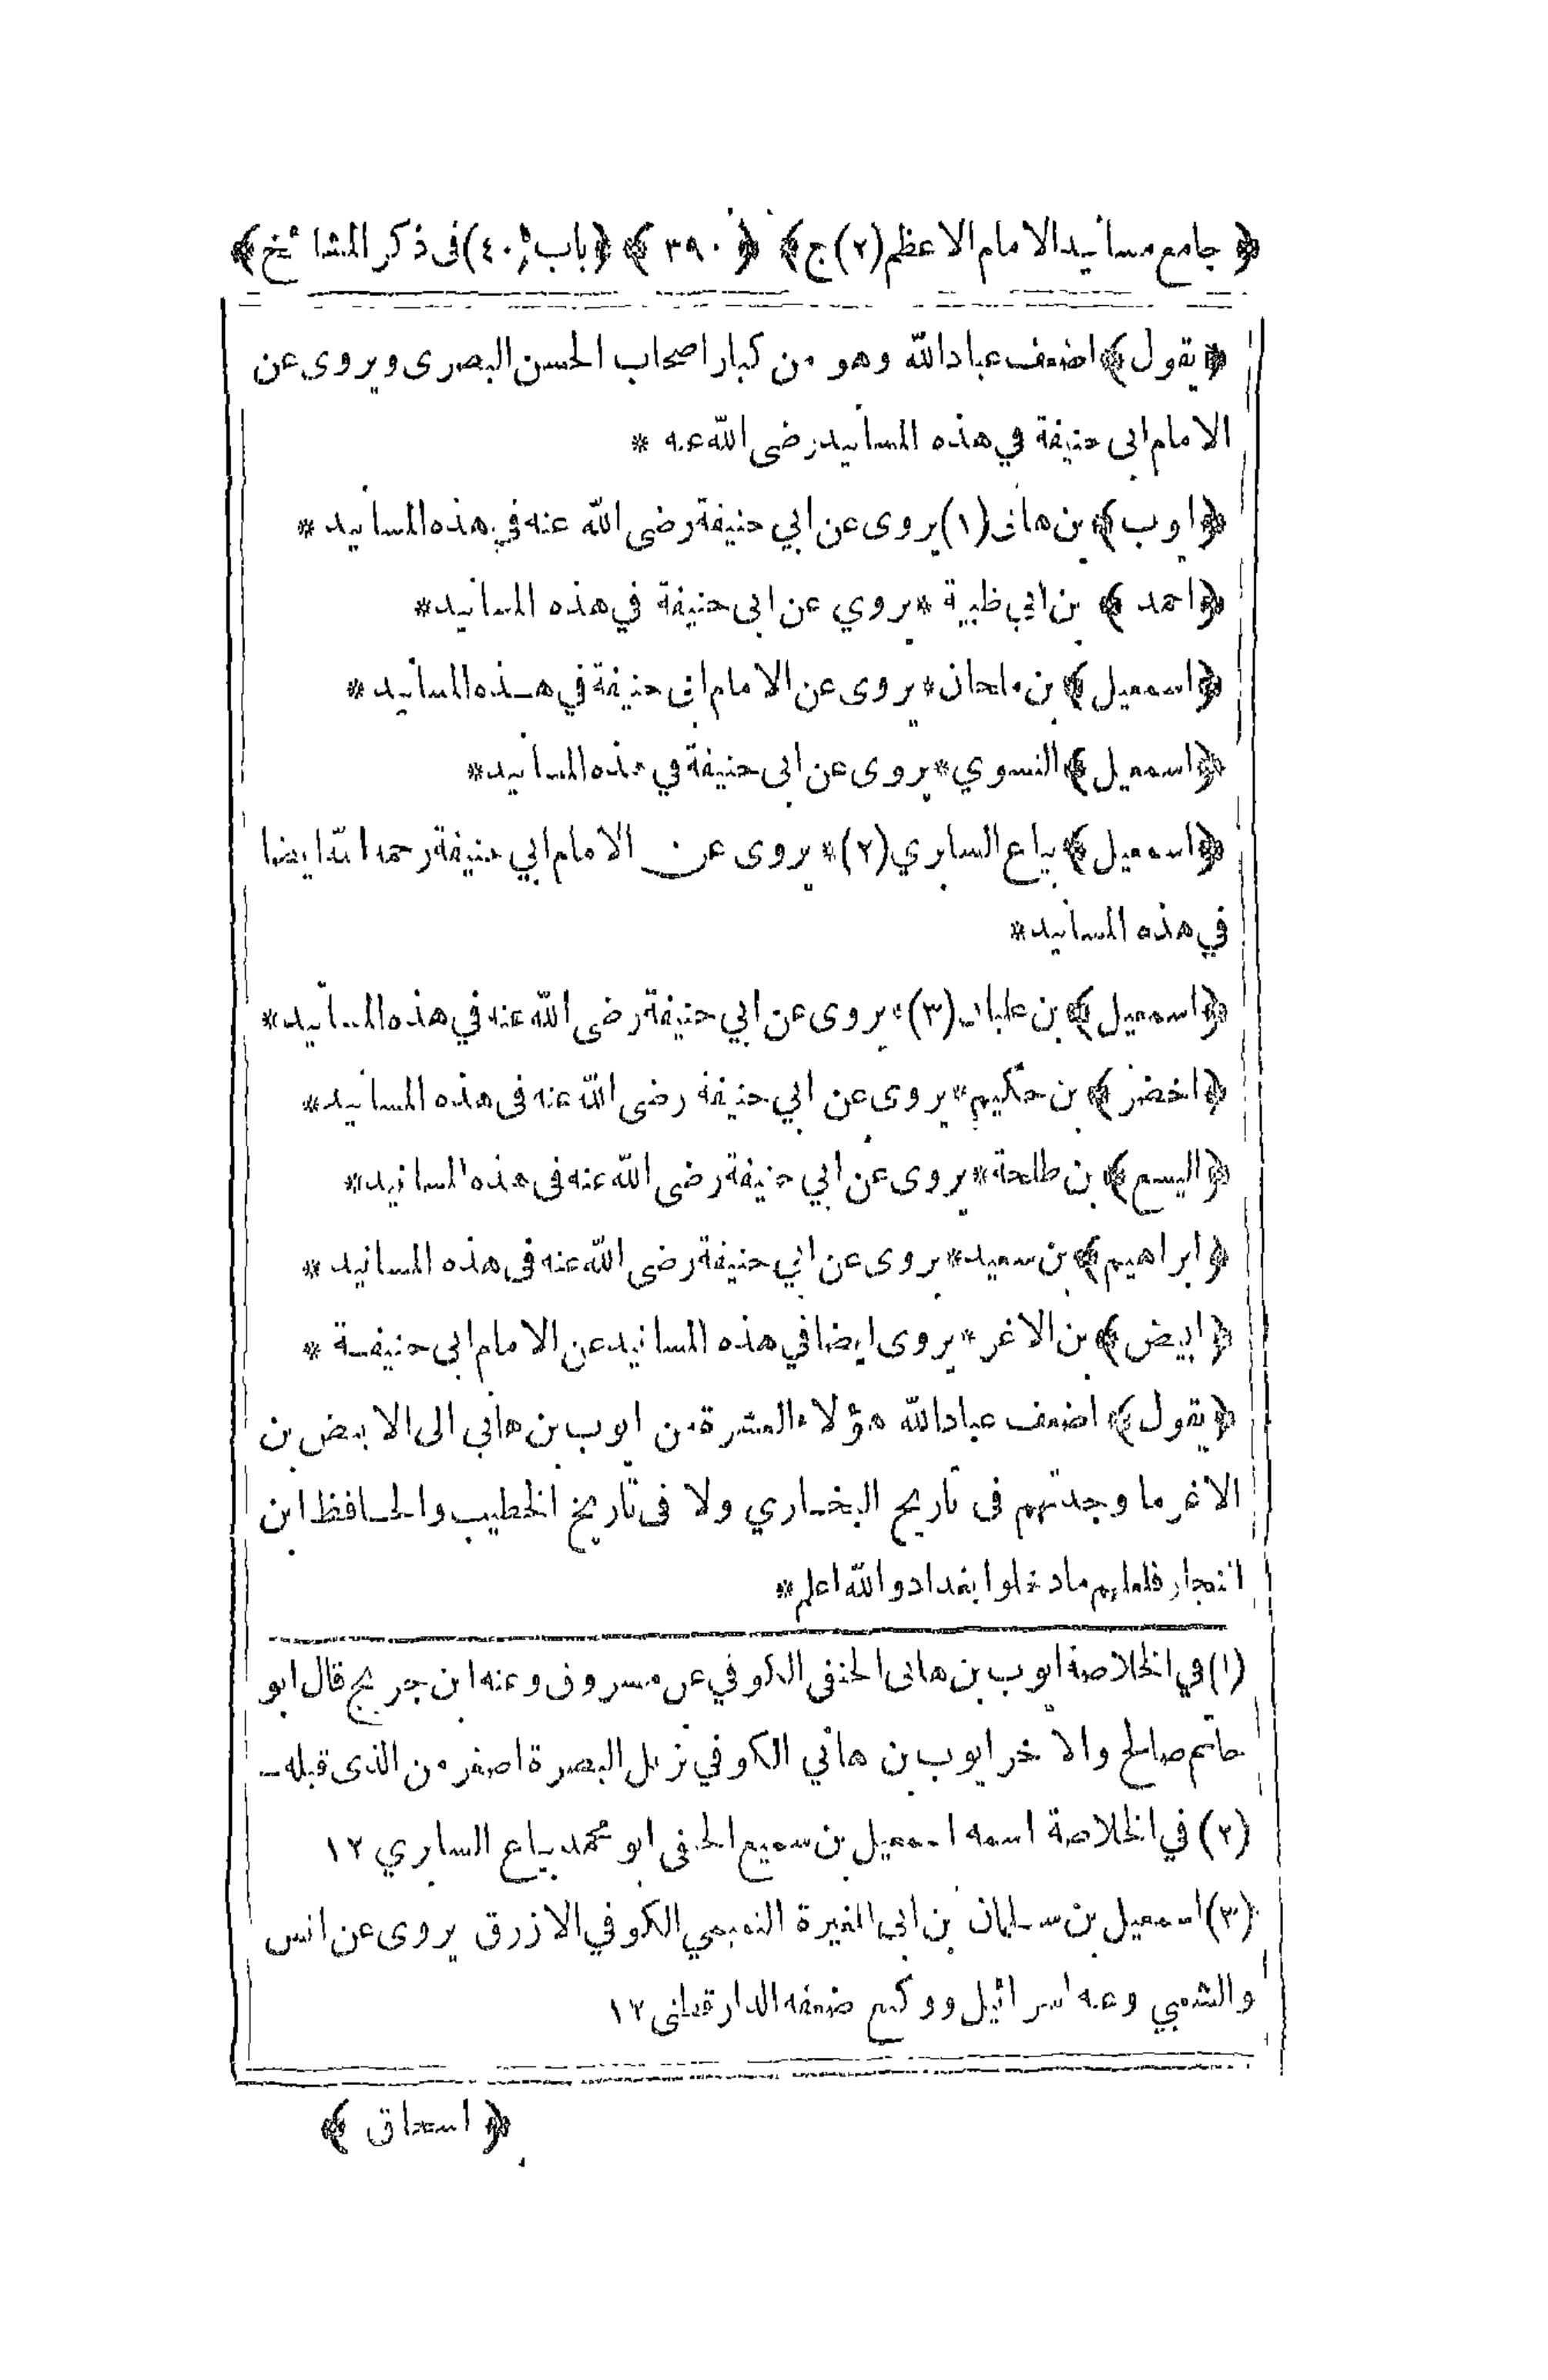 ﴿ جامع مسانيد الامام الاعظم (٢) ج﴾ ﴿ ٣٩٠ ﴾ ﴿باب (٤٠) فى ذكر المشائخ﴾
﴿يقول﴾ اضعف عباد الله وهو من كبار اصحاب الحسن البصرى ويروى عن
الامام ابى حنيفة في هذه المسانيد رضى الله عنه *
﴿ايوب﴾ بن هانى (١) يروى عن ابي حنيفة رضى الله عنه في هذه المسانيد *
﴿احمد﴾ بن ابي ظبية * يروي عن ابى حنيفة في هذه المسانيد *
﴿اسمعيل﴾ بن ملحان * يروى عن الامام ابى حنيفة في هـذه المسانيد *
﴿اسمعيل﴾ النسوي * يروى عن ابى حنيفة في هذه المسانيد *
﴿اسمعيل﴾ بياع السابري (٢) * يروى عن الامام ابي حنيفة رحمه الله ايضا
في هذه المسانيد *
﴿اسمعيل﴾ بن (٣) * يروى عن ابي حنيفة رضى الله عنه في هذه المسانيد *
﴿اخضر﴾ بن حكيم * يروى عن ابي حنيفة رضى الله عنه فى هذه المسانيد *
﴿اليسع﴾ بن طلحة * يروى عن ابي حنيفة رضى الله عنه فى هذه المسانيد *
﴿ابراهيم﴾ بن سعيد * يروى عن ابي حنيفة رضى الله عنه فى هذه المسانيد *
﴿ابيض﴾ بن الاغر * يروى ايضا في هذه المسانيد عن الامام ابى حنيفـة *
﴿يقول﴾ اضعف عباد الله هؤلاء العشرة من ايوب بن هاني الى الابيض بن
الاغر ما وجدتهم فى تاريخ البخـاري ولا فى تاريخ الخطيب والحـافظ ابن
النجار فلعلهم ما دخلوا بغداد والله اعلم *
(١) في الخلاصة ايوب بن هانى الحنفى الكوفي عن مسروق وعنه ابن جريج قال ابو
حاتم صالح والاخر ايوب بن هاني الكوفي نزيل البصرة اصغر من الذى قبله ــ
(٢) في الخلاصة اسمه اسمعيل بن سميع الحنفى ابو محمد بياع السابري ١٢
(٣) اسمعيل بن سـلمان بن ابى المغيرة التميمي الكوفي الازرق يروى عن انس
والشعبي وعنه اسرائيل ووكيع ضعفه الدارقطنى ١٢
﴿ اسحاق ﴾